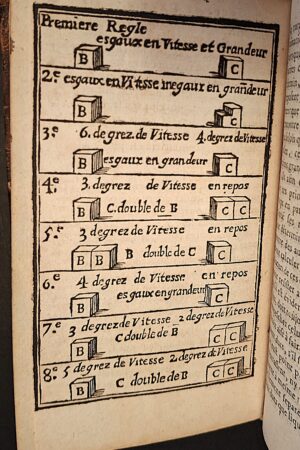 Premiere Regle
esgaux en Vitesse et Grandeur
B C
2e esgaux en Vitesse inegaux en grandeur
B C
3e 6. degrez de Vitesse 4. degrez de Vitesse
B esgaux en grandeur C
4e 3. degrez de Vitesse en repos
B C. double de B C C
5e 3 degrez de Vitesse en repos
B B B double de C C
6e 4 degrez de Vitesse en repos
B esgaux en grandeur C
7e 3 degrez de Vitesse 2 degrez de Vitesse
B C double de B C C
8e 5 degrez de Vitesse 2 degrez de Vitesse
B C double de B C C